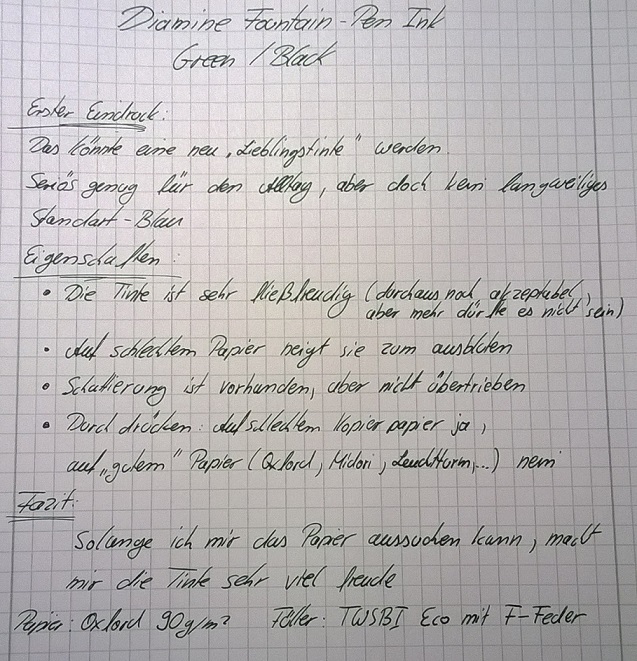 Diamine Fountain-Pen Ink
Green / Black
Erster Eindruck:
Das könnte eine neu „Lieblingstinte" werden.
Seriös genug für den Alltag, aber doch kein langweiliges
Standart-Blau
Eigenschaften:
• Die Tinte ist sehr fließfreudig (durchaus noch akzeptabel,
aber mehr dürfte es nicht sein)
• Auf schlechtem Papier neigt sie zum ausbluten
• Schattierung ist vorhanden, aber nicht übertrieben
• Durchdrücken: Auf schlechtem Kopierpapier ja,
auf „gutem" Papier (Oxford, Midori, Leuchtturm,...) nein
Fazit:
Solange ich mir das Papier aussuchen kann, macht
mir die Tinte sehr viel freude
Papier: Oxford 90g/m² Füller: TWSBI Eco mit F-Feder